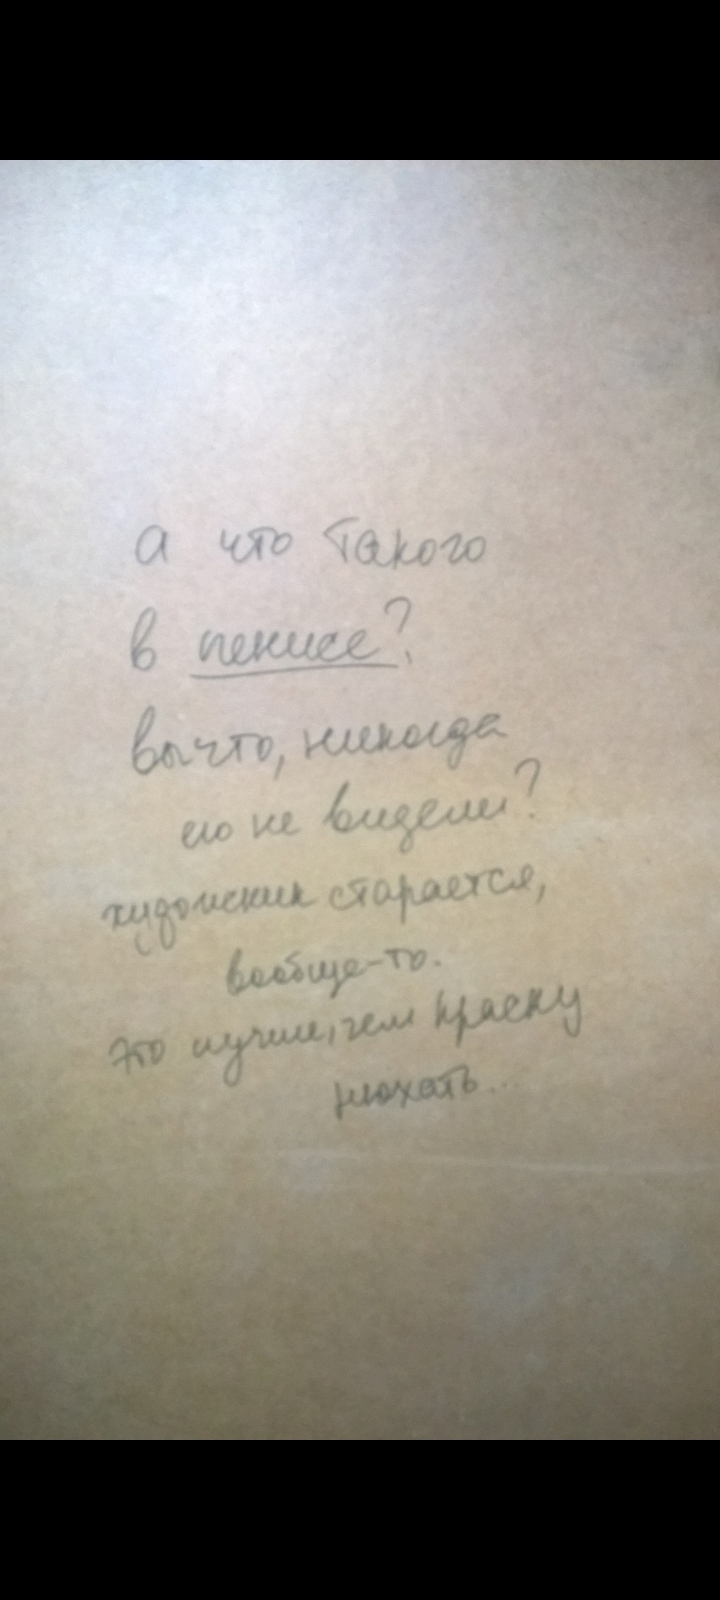 а что такого
в пенисе?
вы что, никогда
его не видели?
художник старается,
вообще-то.
это лучше, чем краску
нюхать...